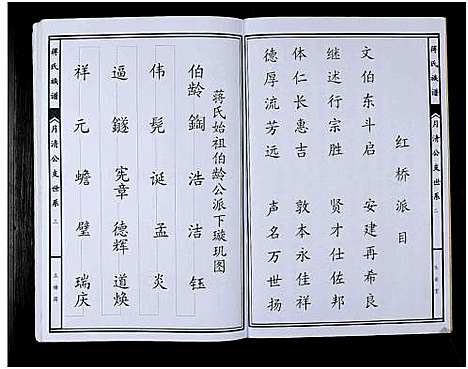 红桥派目
文伯东斗启 安建再希良
继述行宗胜 贤才仕佐邦
体仁长惠吉 敦本永佳祥
德厚流芳远 声名万世扬
蒋氏族谱
月清公支世系 二
蒋氏始祖伯龄公派下璇玑图
伯龄 鋾 浩 洁 钰
伟 髡 诞 孟 炎
逼 鐩 宪章 德辉 道焕
祥 元 蟾 璧 瑞庆
蒋氏族谱
月清公支世系 三